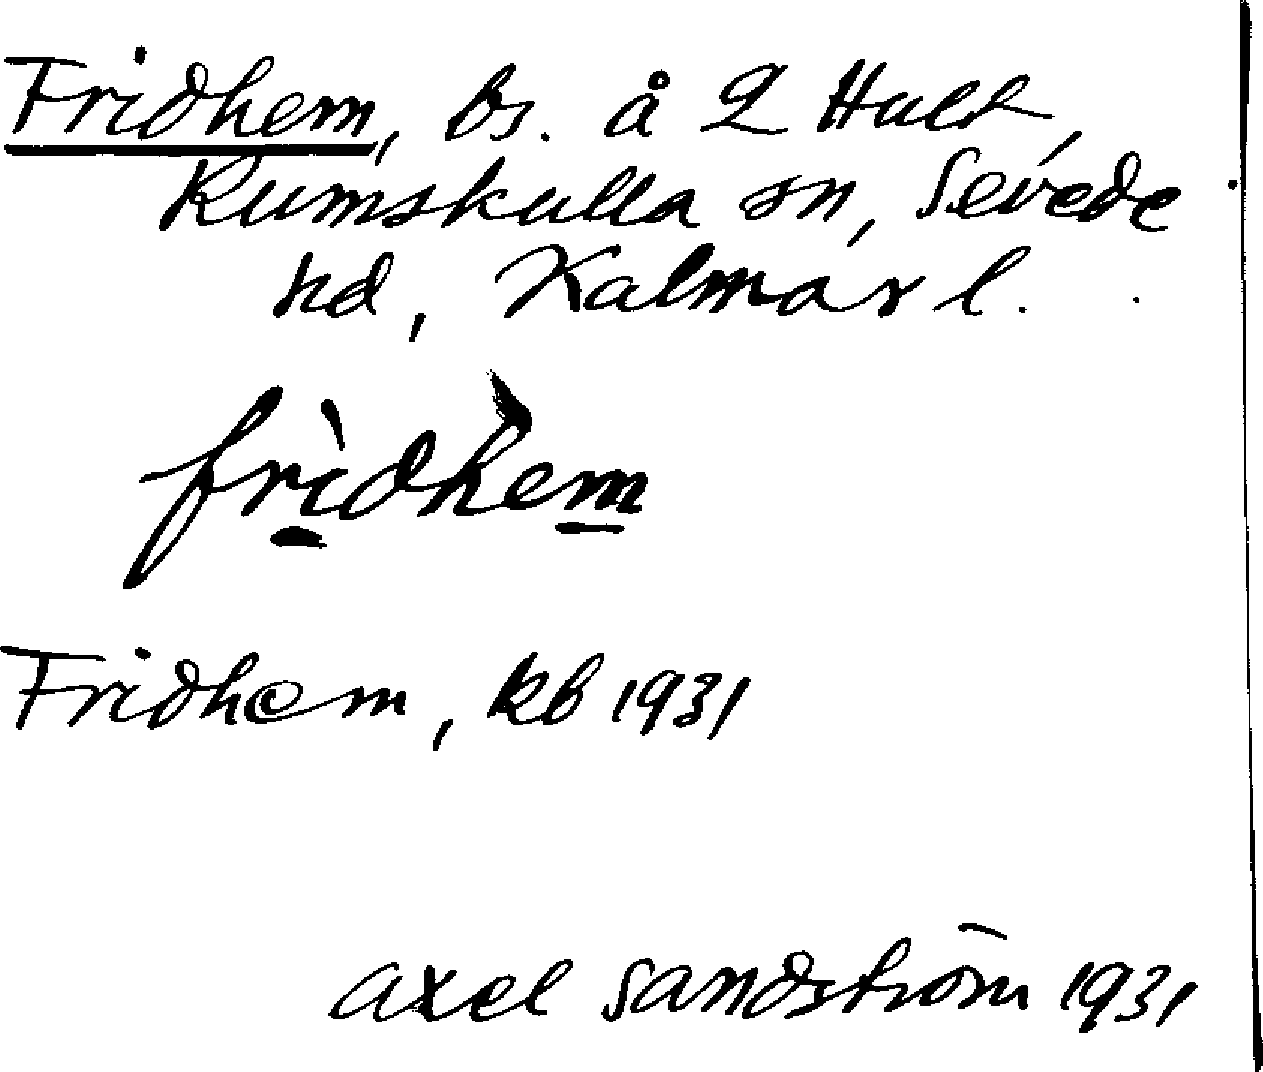 Fridhem, bs. å 2 Hult,
Rumskulla sn, Sevede
hd, Kalmar l.
frìdhèm
Fridhem, kb 1931
Axel Sandström 1931